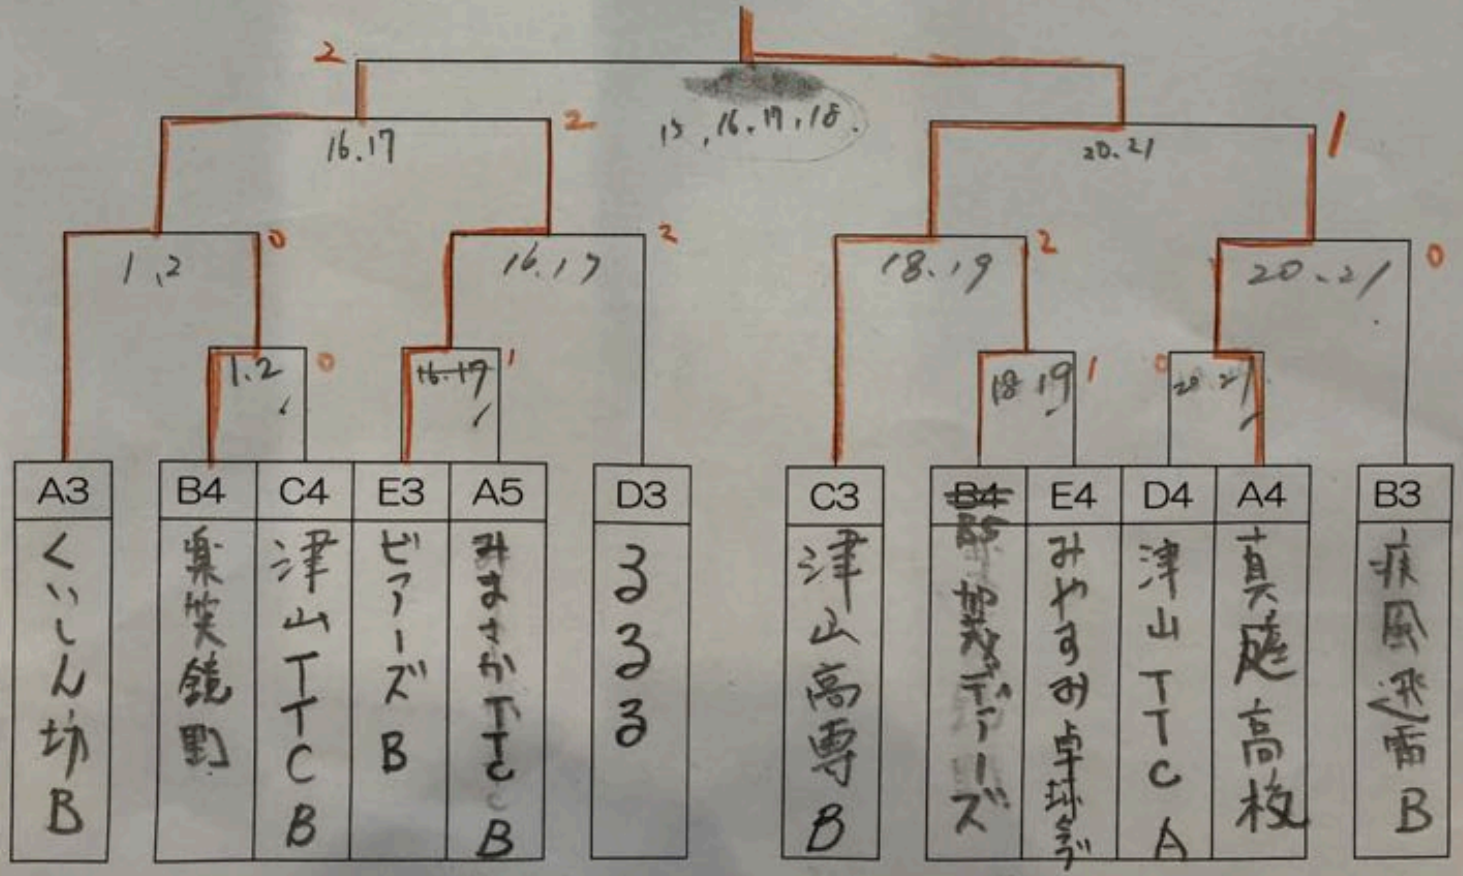 2
15,16,17,18.
16.17
2
20.21
1
1,2
0
16.17
2
18.19
2
20.21
0
1.2
0
16.17
1
18 19
1
0
20 21
A3
B4
C4
E3
A5
D3
C3
B4
B5
E4
D4
A4
B3
くいしん坊B
楽笑鏡野
津山TTCB
ビアーズB
みまさかTTCB
るるる
津山高専B
ズ
みやすみ卓球
津山TTCA
真庭高校
疾風迅雷B